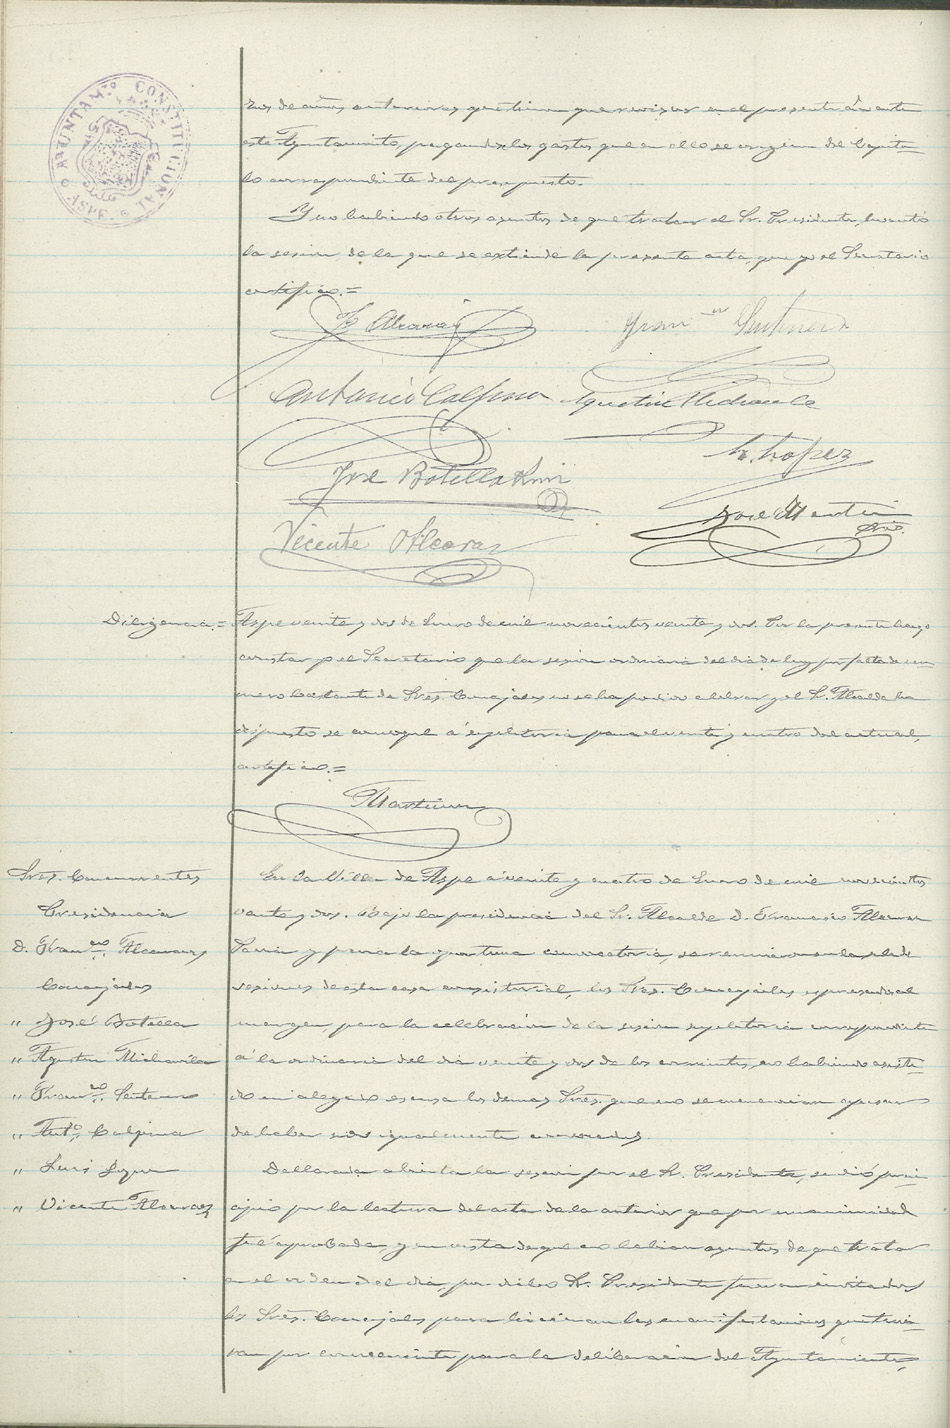 AYUNTAM.TO CONSTITUCIONAL
ASPE
ros de años anteriores que tienen que revisar en el presente año ante
este Ayuntamiento, pagandose los gastos que en ello se originen del Capitu-
lo correspondiente del presupuesto.
Y no habiendo otros asuntos de que tratar el Sr. Presidente, levantó
la sesion de la que se extiende la presente acta, que yo el Secretario
certifico.=
F. Alcaraz
Fran.co Santonera
Antonio Calpena
Agustin Micheavila
L. Lopez
José Botella
José Martin
Srio.
Vicente Alcaraz
Diligencia.=
Aspe veinte y dos de Enero de mil novecientos veinte y dos. Por la presente hago
constar yo el Secretario que la sesion ordinaria del dia de hoy por falta de nu-
mero bastante de Sres. Concejales no se ha podido celebrar y el Sr. Alcalde ha
dispuesto se convoque á supletoria para el veinte y cuatro del actual,
certifico.=
Martinez
Sres. Concurrentes
Presidencia
D. Fran.co Alcaraz
Concejales
" José Botella
" Agustin Michavila
" Fran.co
" Ant.o Calpena
" Luis Lopez
" Vicente Alcaraz
En la Villa de Aspe á veinte y cuatro de Enero de mil novecientos
veinte y dos. bajo la presidencia del Sr. Alcalde D. Francisco Alcaraz
y previa la oportuna convocatoria, se reunieron en la sala de
sesiones de esta casa consistorial, los Sres. Concejales expresados al
margen para la celebracion de la sesion supletoria correspondiente
á la ordinaria del dia veinte y dos de los corrientes, no habiendo asisti-
do ni alegado escusa los demas Sres. que no se mencionan apesar
de haber sido igualmente convocados.
Declarada abierta la sesion por el Sr. Presidente, se dió prin-
cipio por la lectura del acta de la anterior que por unanimidad
fué aprobada, y en vista de que no habian asuntos de que tratar
en el orden del dia, por dicho Sr. Presidente fueron invitados
los Sres. Concejales para hicieran las manifestaciones que tuvie-
ran por conveniente para la deliberacion del Ayuntamiento,